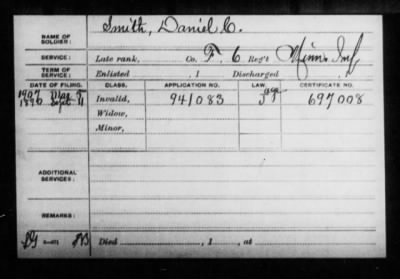 NAME OF SOLDIER: Smith, Daniel C.
SERVICE: Late rank, Co. F. 6 Reg't Minn. Inf.
TERM OF SERVICE: Enlisted , 1 Discharged , 1
DATE OF FILING. CLASS. APPLICATION NO. LAW. CERTIFICATE NO.
1907
1890 Sept 4 Invalid, 941083 697008
Widow,
Minor,
ADDITIONAL SERVICES:
REMARKS:
Died , 1 , at